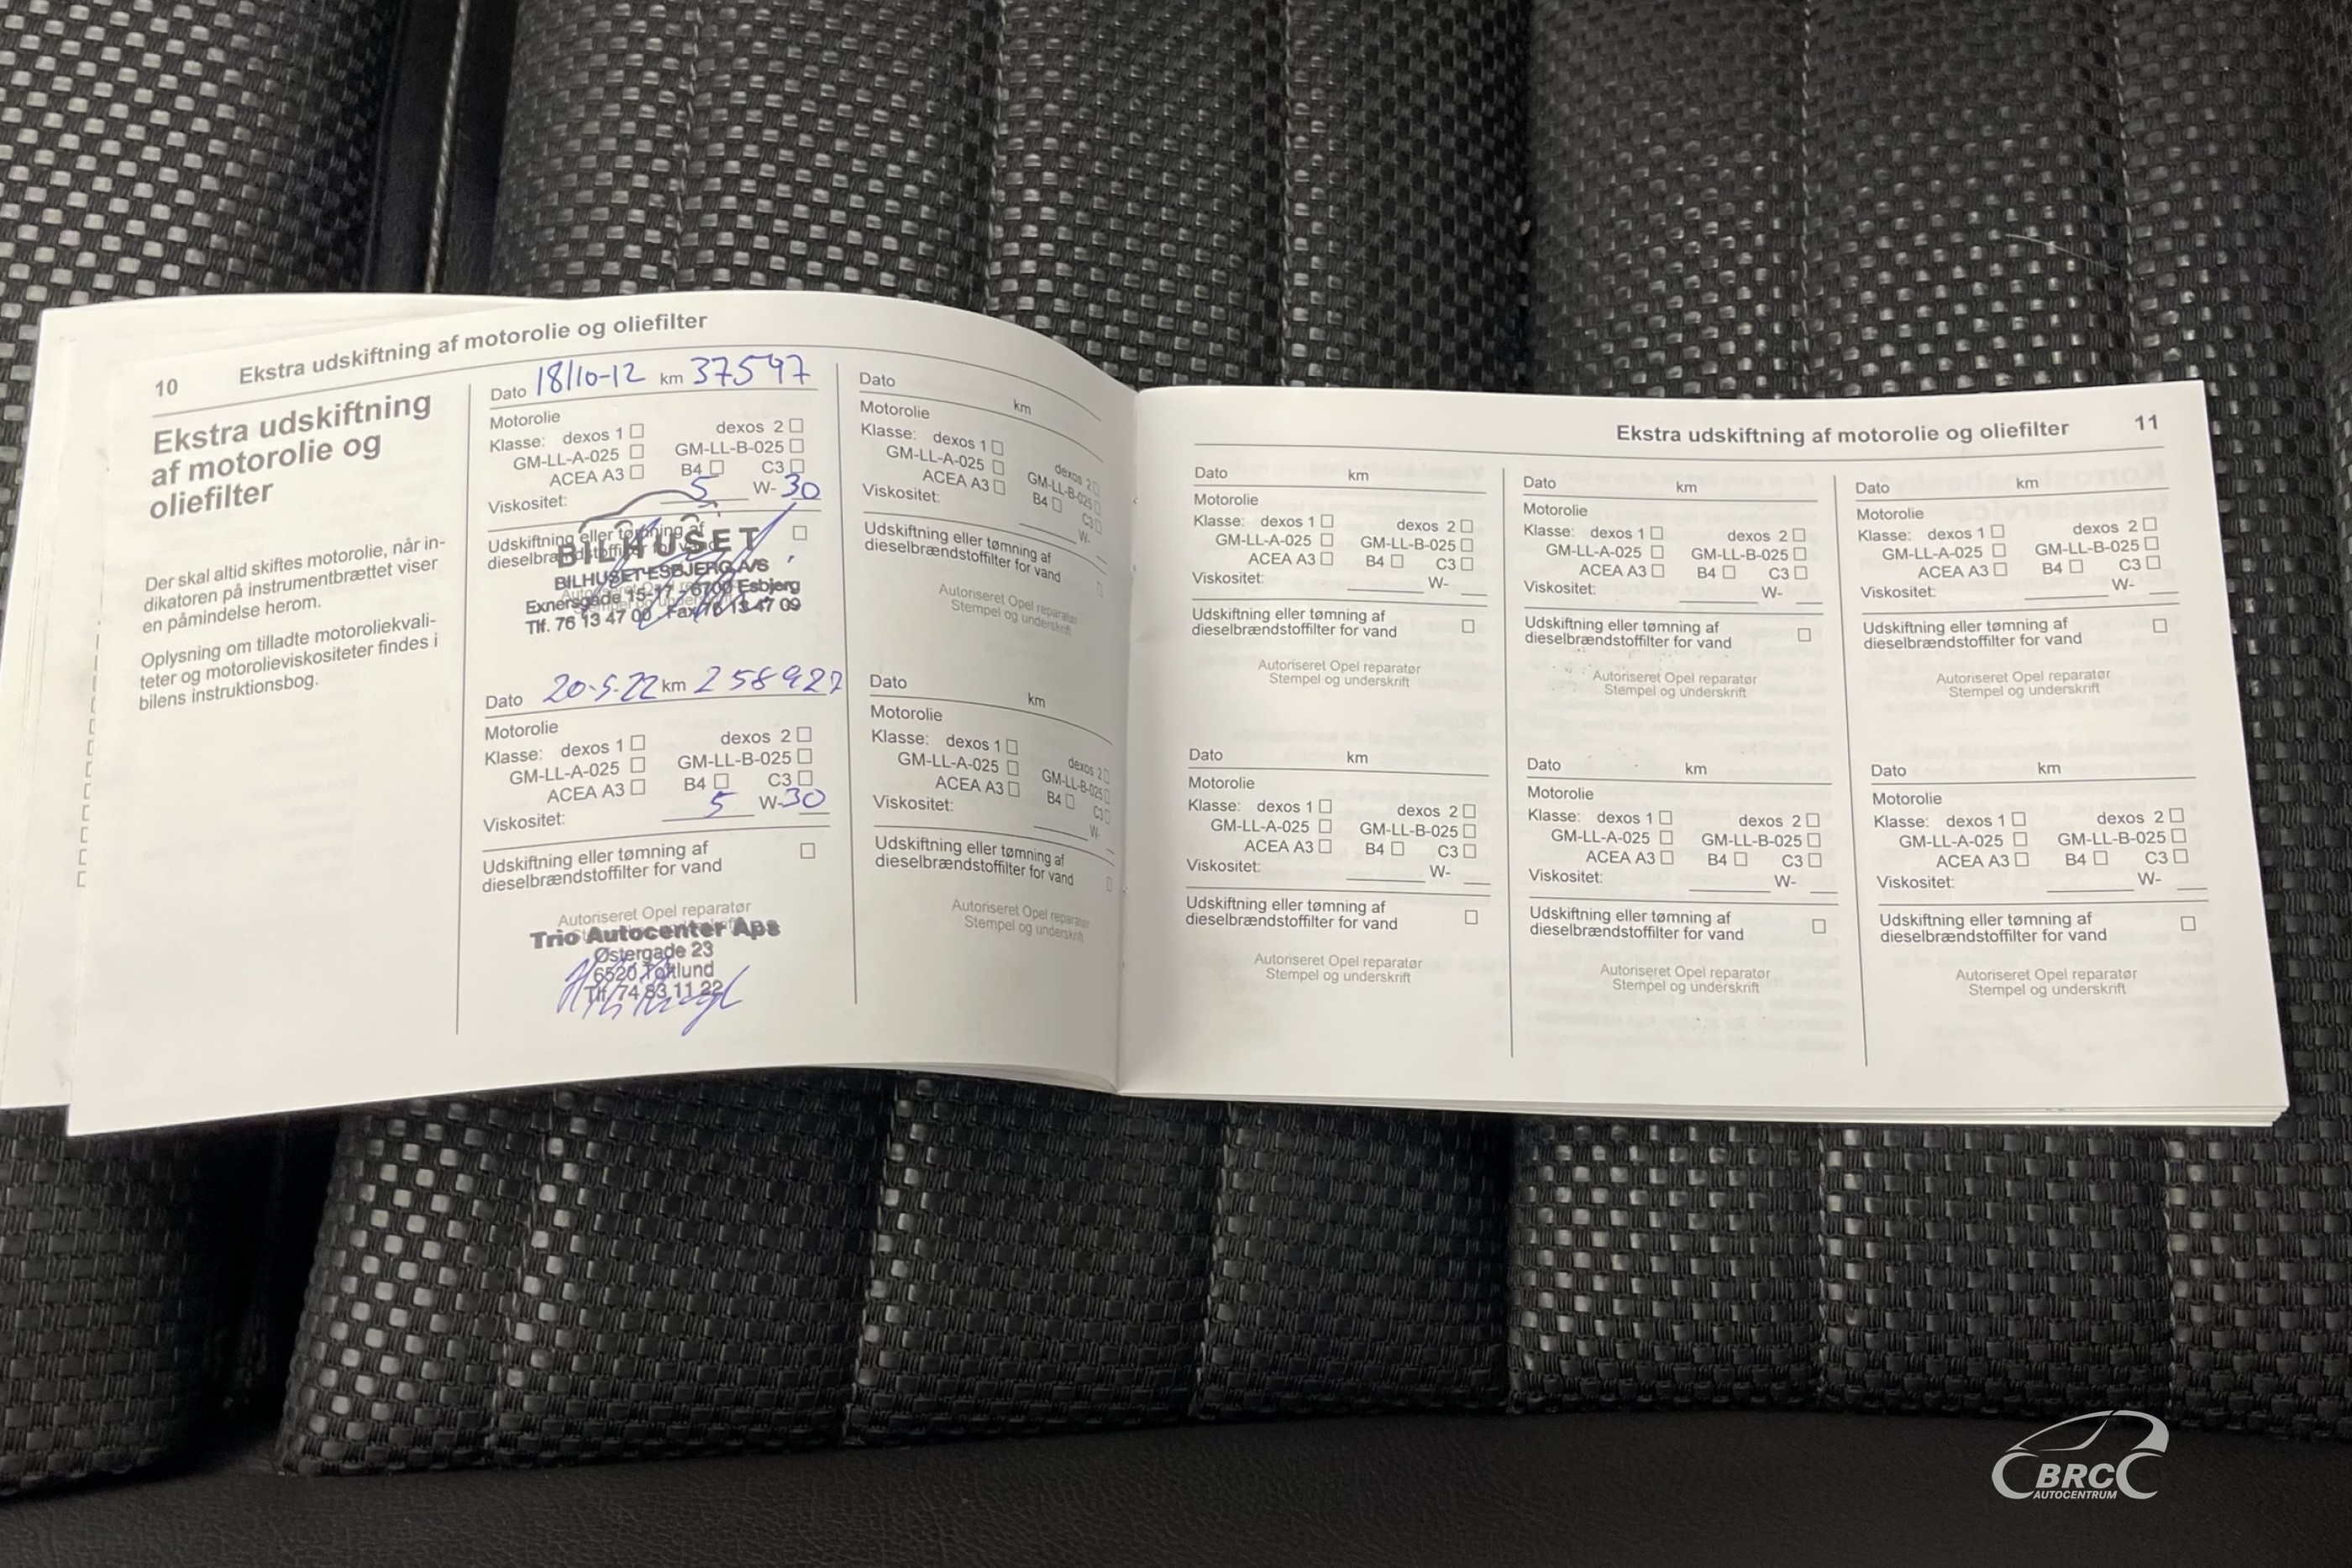 10 Ekstra udskiftning af motorolie og oliefilter
Ekstra udskiftning
af motorolie og
oliefilter
Der skal altid skiftes motorolie, når in-
dikatoren på instrumentbrættet viser
en påmindelse herom.
Oplysning om tilladte motoroliekvali-
teter og motorolieviskositeter findes i
bilens instruktionsbog.
Dato 18/10-12 km 37597
Motorolie
Klasse: dexos 1 dexos 2
GM-LL-A-025 GM-LL-B-025
ACEA A3 B4 C3
Viskositet: 5 W-30
Udskiftning eller tømning af
dieselbrændstoffilter for vand
BILHUSET
BILHUSET ESBJERG A/S
Exnersgade 15-17 - 6700 Esbjerg
Tlf. 76 13 47 00 Fax 76 13 47 09
Dato 20-5-22 km 258927
Motorolie
Klasse: dexos 1 dexos 2
GM-LL-A-025 GM-LL-B-025
ACEA A3 B4 C3
Viskositet: 5 W-30
Udskiftning eller tømning af
dieselbrændstoffilter for vand
Autoriseret Opel reparatør
Trio Autocenter Aps
Østergade 23
6520 Toftlund
Tlf. 74 83 11 22
Dato km
Motorolie
Klasse: dexos 1 dexos 2
GM-LL-A-025 GM-LL-B-025
ACEA A3 B4 C3
Viskositet: W-
Udskiftning eller tømning af
dieselbrændstoffilter for vand
Autoriseret Opel reparatør
Stempel og underskrift
Dato km
Motorolie
Klasse: dexos 1 dexos 2
GM-LL-A-025 GM-LL-B-025
ACEA A3 B4 C3
Viskositet: W-
Udskiftning eller tømning af
dieselbrændstoffilter for vand
Autoriseret Opel reparatør
Stempel og underskrift
Ekstra udskiftning af motorolie og oliefilter 11
Dato km
Motorolie
Klasse: dexos 1 dexos 2
GM-LL-A-025 GM-LL-B-025
ACEA A3 B4 C3
Viskositet: W-
Udskiftning eller tømning af
dieselbrændstoffilter for vand
Autoriseret Opel reparatør
Stempel og underskrift
Dato km
Motorolie
Klasse: dexos 1 dexos 2
GM-LL-A-025 GM-LL-B-025
ACEA A3 B4 C3
Viskositet: W-
Udskiftning eller tømning af
dieselbrændstoffilter for vand
Autoriseret Opel reparatør
Stempel og underskrift
Dato km
Motorolie
Klasse: dexos 1 dexos 2
GM-LL-A-025 GM-LL-B-025
ACEA A3 B4 C3
Viskositet: W-
Udskiftning eller tømning af
dieselbrændstoffilter for vand
Autoriseret Opel reparatør
Stempel og underskrift
Dato km
Motorolie
Klasse: dexos 1 dexos 2
GM-LL-A-025 GM-LL-B-025
ACEA A3 B4 C3
Viskositet: W-
Udskiftning eller tømning af
dieselbrændstoffilter for vand
Autoriseret Opel reparatør
Stempel og underskrift
Dato km
Motorolie
Klasse: dexos 1 dexos 2
GM-LL-A-025 GM-LL-B-025
ACEA A3 B4 C3
Viskositet: W-
Udskiftning eller tømning af
dieselbrændstoffilter for vand
Autoriseret Opel reparatør
Stempel og underskrift
Dato km
Motorolie
Klasse: dexos 1 dexos 2
GM-LL-A-025 GM-LL-B-025
ACEA A3 B4 C3
Viskositet: W-
Udskiftning eller tømning af
dieselbrændstoffilter for vand
Autoriseret Opel reparatør
Stempel og underskrift
BRC
AUTOCENTRUM